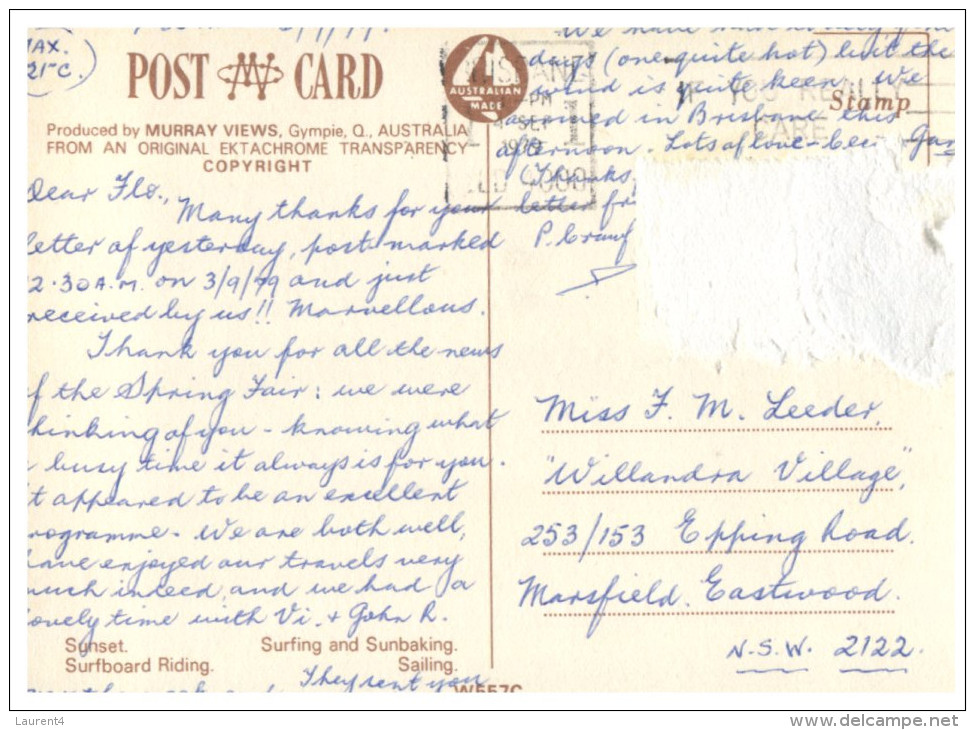 MAX.
21°C.)
POST CARD
Produced by MURRAY VIEWS, Gympie, Q., AUSTRALIA
FROM AN ORIGINAL EKTACHROME TRANSPARENCY
COPYRIGHT
AUSTRALIAN
MADE
Dear Flo.,
Many thanks for your
letter of yesterday, post-marked
2.30 A.M. on 3/9/79 and just
received by us!! Marvellous.
Thank you for all the news
of the Spring Fair: we were
thinking of you - knowing what
a busy time it always is for you.
It appeared to be an excellent
programme. We are both well,
have enjoyed our travels very
much indeed and we had a
lovely time with Vi. & John R.
Sunset. Surfing and Sunbaking.
Surfboard Riding. Sailing.
They sent you
W557C
We have had
days (one quite hot) but the
wind is quite keen. We
arrived in Brisbane this
afternoon. Lots of love
(Thanks,
letter
P. Crawf
Stamp
IF YOU REALLY
CARE
PM
SEP
1979
QLD 4000
Miss F. M. Leeder,
"Willandra Village",
253/153 Epping Road.
Marsfield. Eastwood.
N.S.W. 2122.
Laurent4
delcampe.net